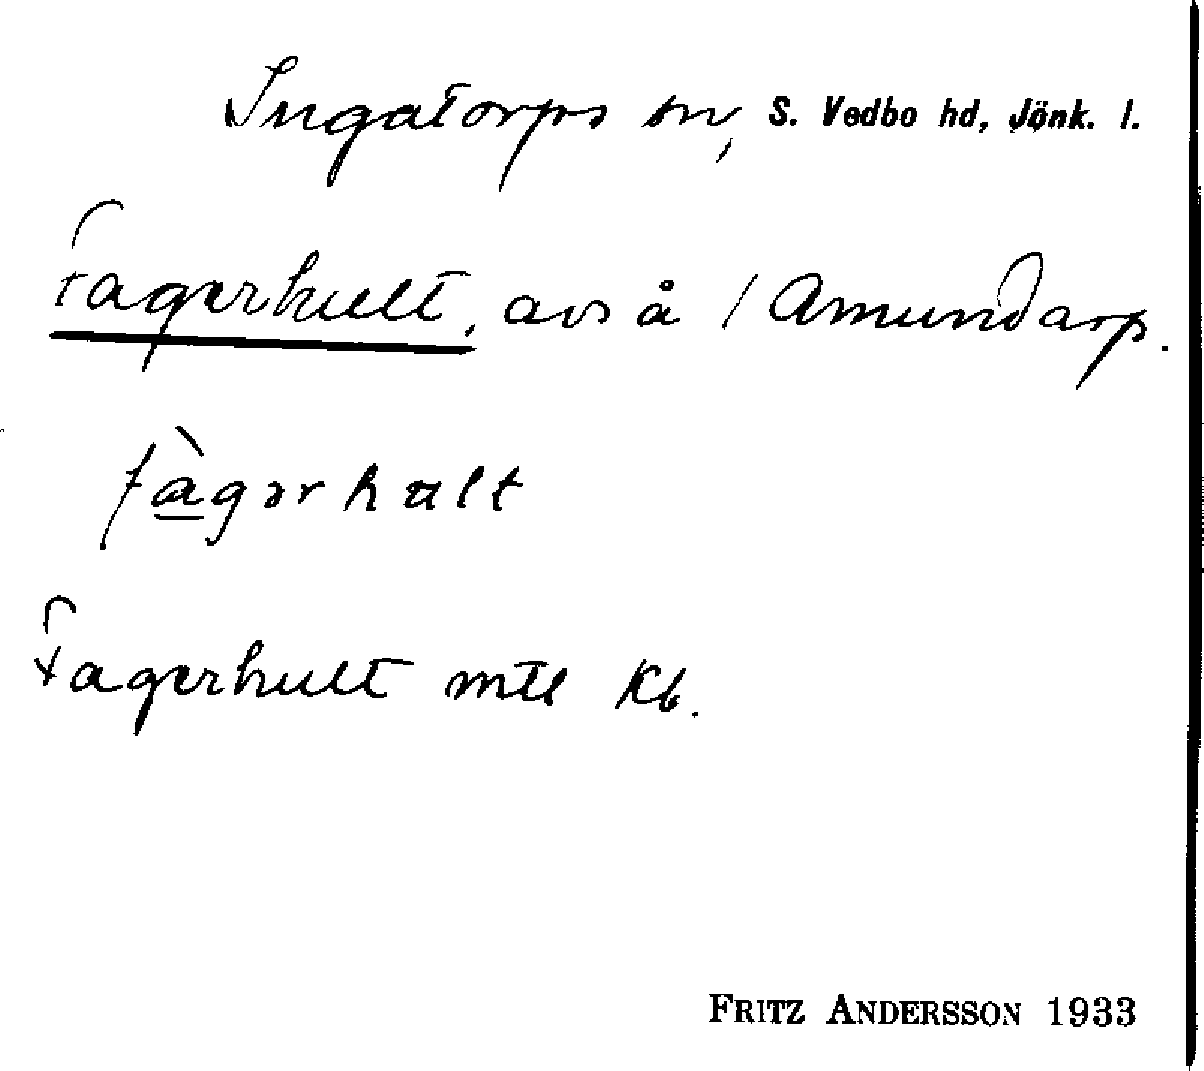 Ingatorps sn, S. Vedbo hd, Jönk. l.
Fagerhult, avs å 1 Amundarp.
fàgərhult
Fagerhult mtl Kb.
FRITZ ANDERSSON 1933